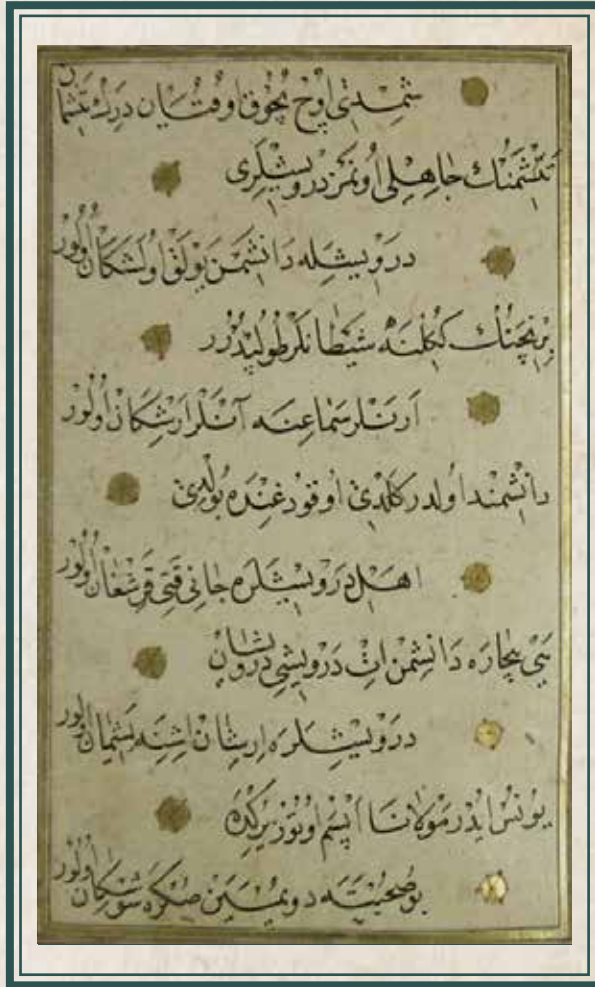 شمدی اوخ بچوق اوقیان درله تشمان
تنشمنك جاهلی اونمز درویشلری
درویشله دانشمن یولق اولشكان اولور
برنچنك ككلنه شیطانلر طولیدرر
ارنلر سماعنه آنلر ارشكان اولور
دانشمند اولدر كلدی اوقودغنده بولدی
اهل درویشلره جانی قتی قرشغان اولور
ای بیچاره دانشمن درویشی
درویشلره ارشان اشنه پشمان اولور
یونس ایدر مولانا اپسم اوتوز یركده
بو صحبته دویمین صكره شوشكان اولور